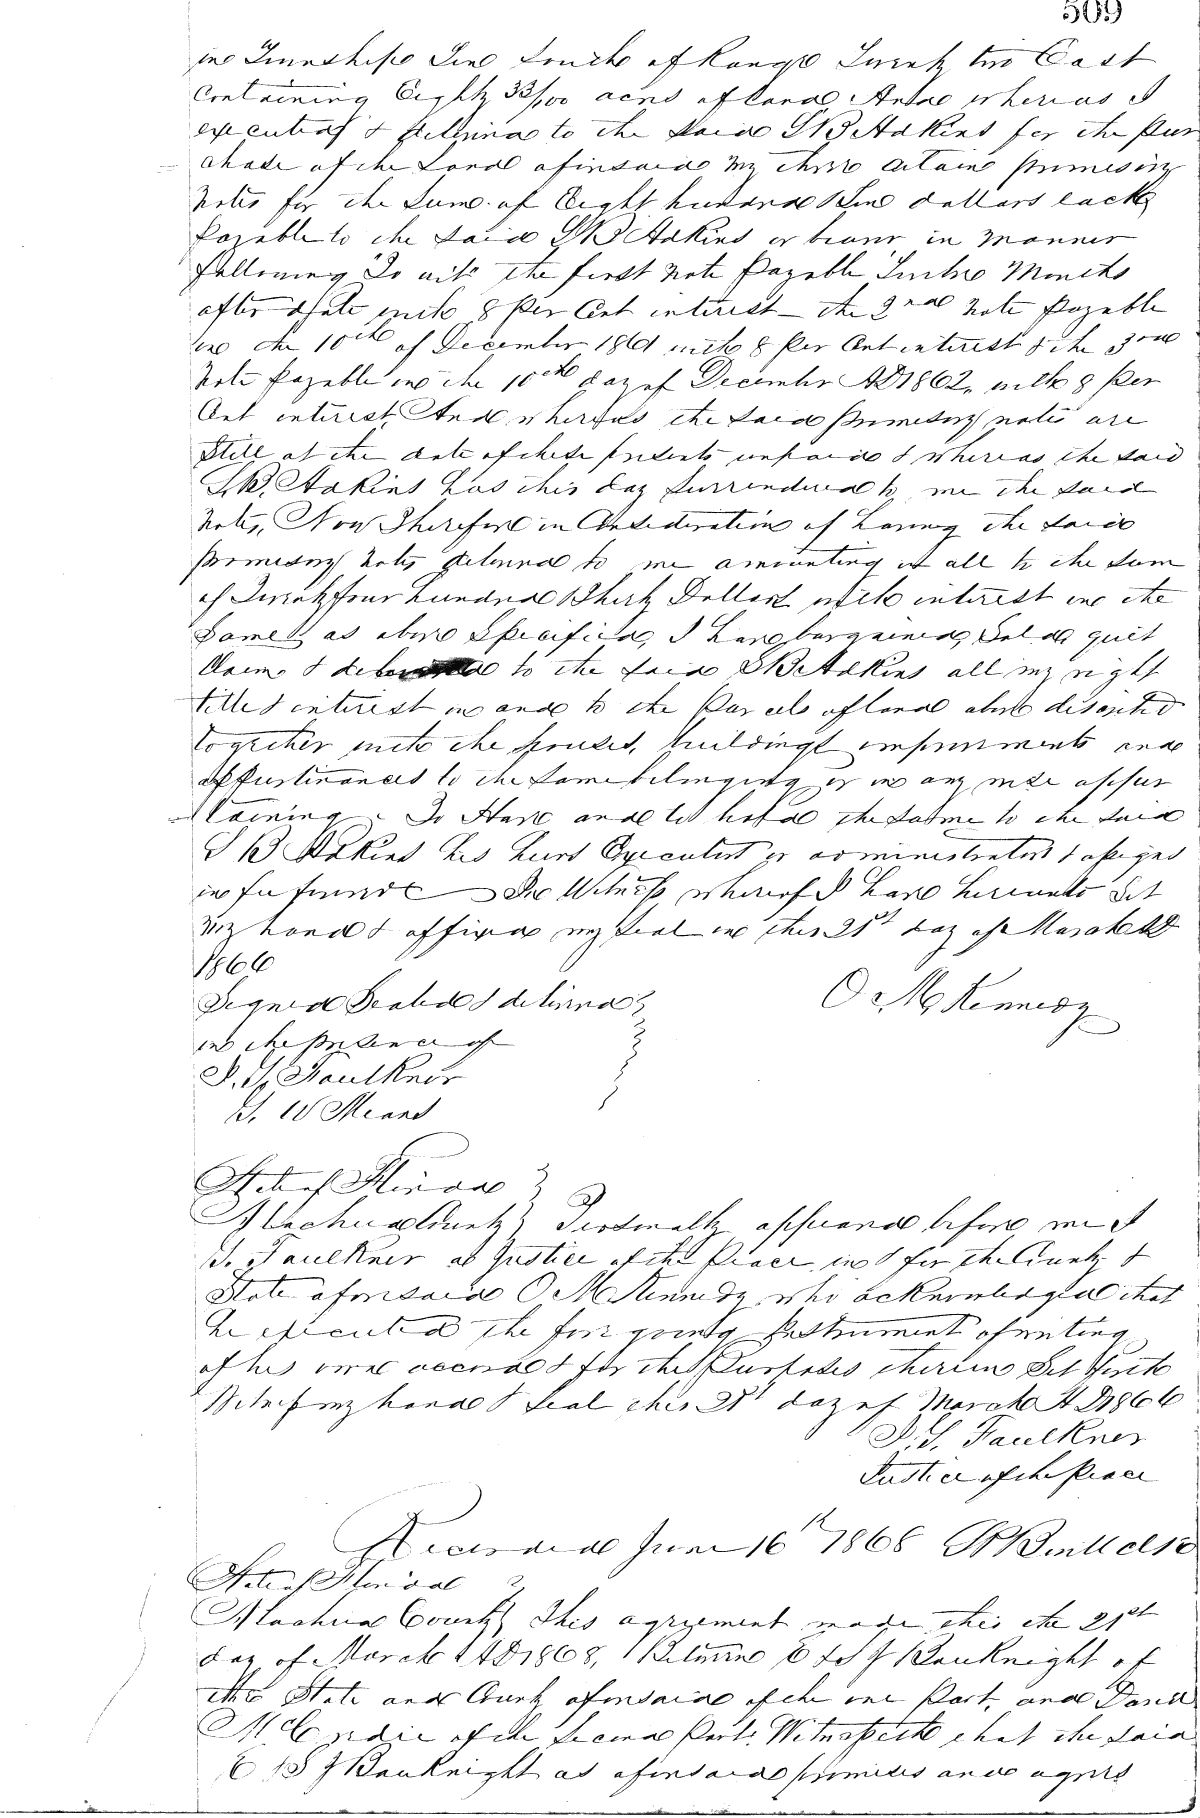 509
in Township Ten South of Range Twenty two East
Containing Eighty 33/100 acres of land, And whereas I
executed & delivered to the said S B Adkins for the Pur
chase of the Land aforesaid my three certain promisory
Notes for the Sum of Eight hundred & Ten dollars each
Payable to the said S B Adkins or bearer in manner
following To wit the first Note Payable Twelve Months
after date with 8 Per Cent interest — the 2nd Note Payable
on the 10th of December 1861 with 8 Per Cent interest & the 3rd
Note Payable on the 10th day of December AD 1862, with 8 Per
Cent interest, And whereas the said promisory notes are
Still at the date of these presents unpaid & whereas the said
S. B. Adkins has this day Surrendered to me the said
Notes, Now Therefore in Consideration of having the said
promisory Notes delivered to me amounting in all to the Sum
of Twenty four hundred & thirty Dollars with interest on the
Same as above Specified, I have bargained, Sold quit
Claim & delivered to the said S B Adkins all my right
title & interest in and to the Parcels of land above described
together with the houses, buildings improvments and
appurtinances to the same belonging or in any wise apper
taining. To Have and to hold the same to the said
S B Adkins his heirs Executors or administrators & assigns
in fee In Witness whereof I have hereunto Set
my hand & affixed my Seal on this 21st day of March AD
1866
Signed Sealed & delivered
in the presence of
O M Kennedy
J. S. Faulkner
S. W Means
State of Florida
Alachua County Personally appeared before me J
S. Faulkner a Justice of the Peace in & for the County &
State aforesaid O M Kennedy who acknowledged that
he executed the fore going Instrument of writing
of his own accord & for the Purposes therein Set forth
Witness my hand & Seal this 21st day of March AD 1866
J. S. Faulkner
Justice of the Peace
Recorded June 16th 1868
State of Florida
Alachua County This agreement made this the 21st
day of March AD 1868, Between E & S J Bauknight of
the State and County aforesaid of the one Part, and David
of the Second Part. Witnesseth that the said
E & S J Bauknight as aforesaid promises and agrees